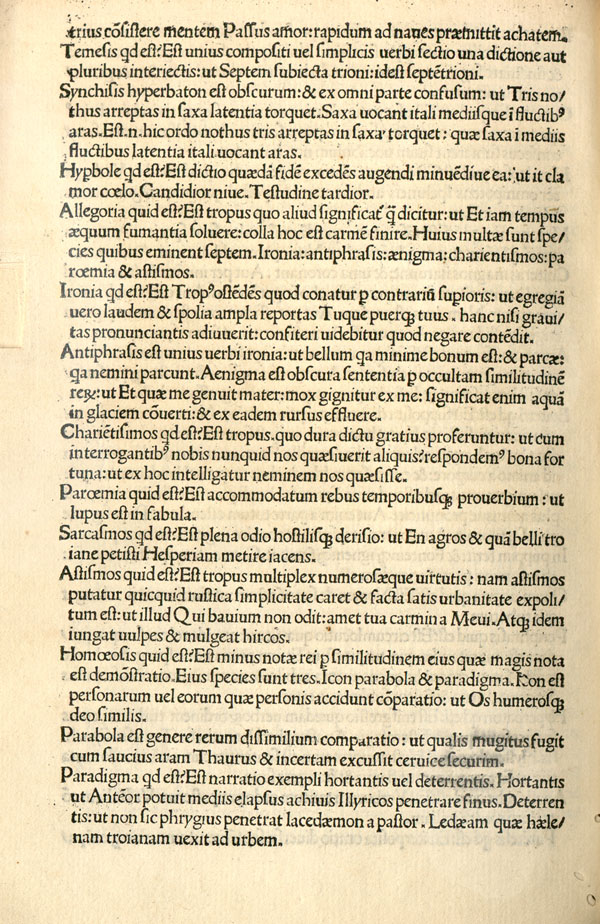 trius cōsistere mentem Passus amor: rapidum ad naues præmittit achatem.
Temesis qd est? Est unius compositi uel simplicis uerbi sectio una dictione aut
pluribus interiectis: ut Septem subiecta trioni: idest septētrioni.
Synchisis hyperbaton est obscurum: & ex omni parte confusum: ut Tris no/
thus arreptas in saxa latentia torquet. Saxa uocant itali mediisque ī fluctibꝰ
aras. Est .n. hic ordo nothus tris arreptas in saxa torquet: quæ saxa i mediis
fluctibus latentia itali uocant aras.
Hypbole qd est? Est dictio quædā fidē excedēs augendi minuēdiue ea: ut it cla
mor cœlo. Candidior niue. Testudine tardior.
Allegoria quid est? Est tropus quo aliud significat̄ q̄ dicitur: ut Et iam tempus
æquum fumantia soluere: colla hoc est carmē finire. Huius multæ sunt spe/
cies quibus eminent septem. Ironia: antiphrasis: ænigma: charientismos: pa
rœmia & astismos.
Ironia qd est? Est Tropꝰ ostēdēs quod conatur p contrariū supioris: ut egregiā
uero laudem & spolia ampla reportas Tuque puerqꝫ tuus. hanc nisi graui/
tas pronunciantis adiuuerit: confiteri uidebitur quod negare contēdit.
Antiphrasis est unius uerbi ironia: ut bellum qa minime bonum est: & parcæ:
qa nemini parcunt. Aenigma est obscura sententia p occultam similitudinē
reꝝ: ut Et quæ me genuit mater: mox gignitur ex me: significat enim aquā
in glaciem cōuerti: & ex eadem rursus effluere.
Chariētismos qd est? Est tropus. quo dura dictu gratius proferuntur: ut cum
interrogantibꝰ nobis nunquid nos quæsiuerit aliquis? respondemꝰ bona for
tuna: ut ex hoc intelligatur neminem nos quæsisse.
Parœmia quid est? Est accommodatum rebus temporibusqꝫ prouerbium: ut
lupus est in fabula.
Sarcasmos qd est? Est plena odio hostilisqꝫ derisio: ut En agros & quā belli tro
iane petisti Hesperiam metire iacens.
Astismos quid est? Est tropus multiplex numerosæque uirtutis: nam astismos
putatur quicquid rustica simplicitate caret & facta satis urbanitate expoli/
tum est: ut illud Qui bauium non odit: amet tua carmina Meui. Atqꝫ idem
iungat uulpes & mulgeat hircos.
Homœosis quid est? Est minus notæ rei p similitudinem eius quæ magis nota
est demōstratio. Eius species sunt tres. Icon parabola & paradigma. Icon est
personarum uel eorum quæ personis accidunt cōparatio: ut Os humerosqꝫ
deo similis.
Parabola est genere rerum dissimilium comparatio: ut qualis mugitus fugit
cum saucius aram Thaurus & incertam excussit ceruice securim.
Paradigma qd est? Est narratio exempli hortantis uel deterrentis. Hortantis
ut Antēor potuit mediis elapsus achiuis Illyricos penetrare sinus. Deterren
tis: ut non sic phrygius penetrat lacedæmona pastor. Ledæam quæ hæle/
nam troianam uexit ad urbem.